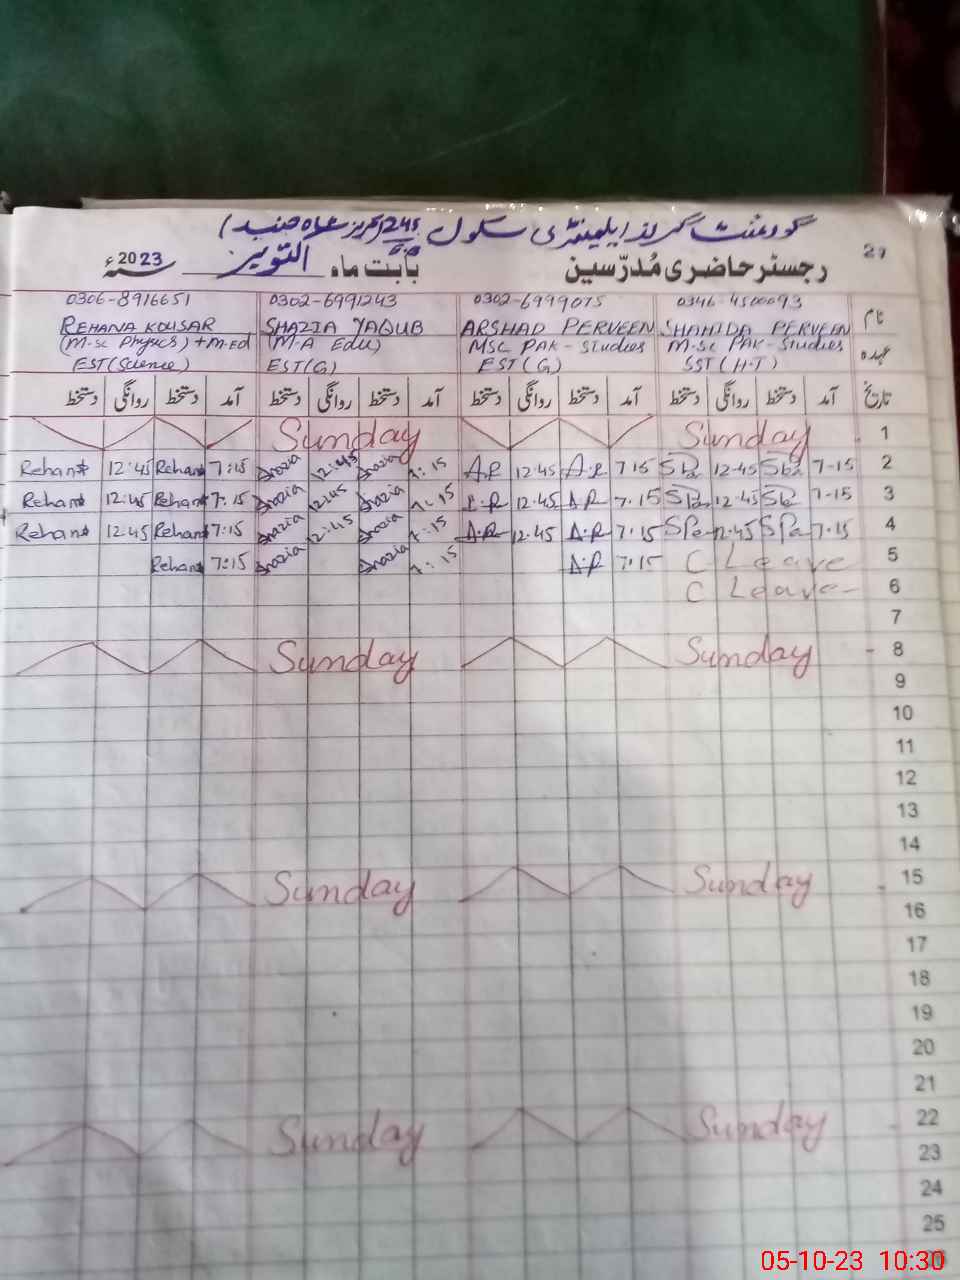 گورنمنٹ گرلز ایلیمنٹری سکول
27
رجسٹر حاضری مُدرّسین بابت ماہ اکتوبر 2023 سنہء
0306-8916651 0302-6991243 0302-6999075 0346-4500093
نام
REHANA KOUSAR SHAZIA YAQUB ARSHAD PERVEEN SHAHIDA PERVEEN
عہدہ
(M-Sc Physics) + M-Ed (M-A Edu) MSC PAK-Studies M-Sc PAK-Studies
EST (Science) EST(G) EST(G) SST (H-T)
تاریخ آمد دستخط روانگی دستخط آمد دستخط روانگی دستخط آمد دستخط روانگی دستخط آمد دستخط روانگی دستخط
Sunday Sunday 1
Rehana 12:45 Rehana 7:15 Shazia 12:45 Shazia 7:15 A.P 12.45 A.P 7.15 12-45 7-15 2
Rehana 12:45 Rehana 7:15 Shazia 12:45 Shazia 7:15 A.P 12.45 A.P 7.15 12-45 7-15 3
Rehana 12:45 Rehana 7:15 Shazia 12:45 Shazia 7:15 A.P 12.45 A.P 7.15 12.45 7.15 4
Rehana 7:15 Shazia 7:15 A.P 7.15 C Leave 5
C Leave 6
7
Sunday Sunday 8
9
10
11
12
13
14
Sunday Sunday 15
16
17
18
19
20
21
Sunday Sunday 22
23
24
25
05-10-23 10:30